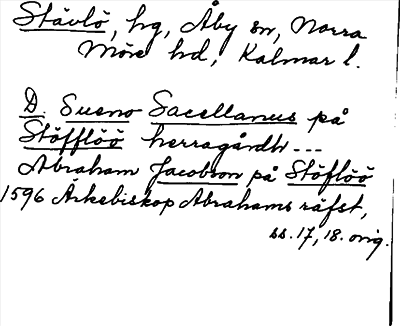 Stävlö, hg, Åby sn, Norra
Möre hd, Kalmar l.
D. Sueno Sacellanus på
Stöfflöö herragårdh ---
Abraham Jacobson på Stöflöö
1596 Ärkebiskop Abrahams räfst,
ss. 17, 18. orig.